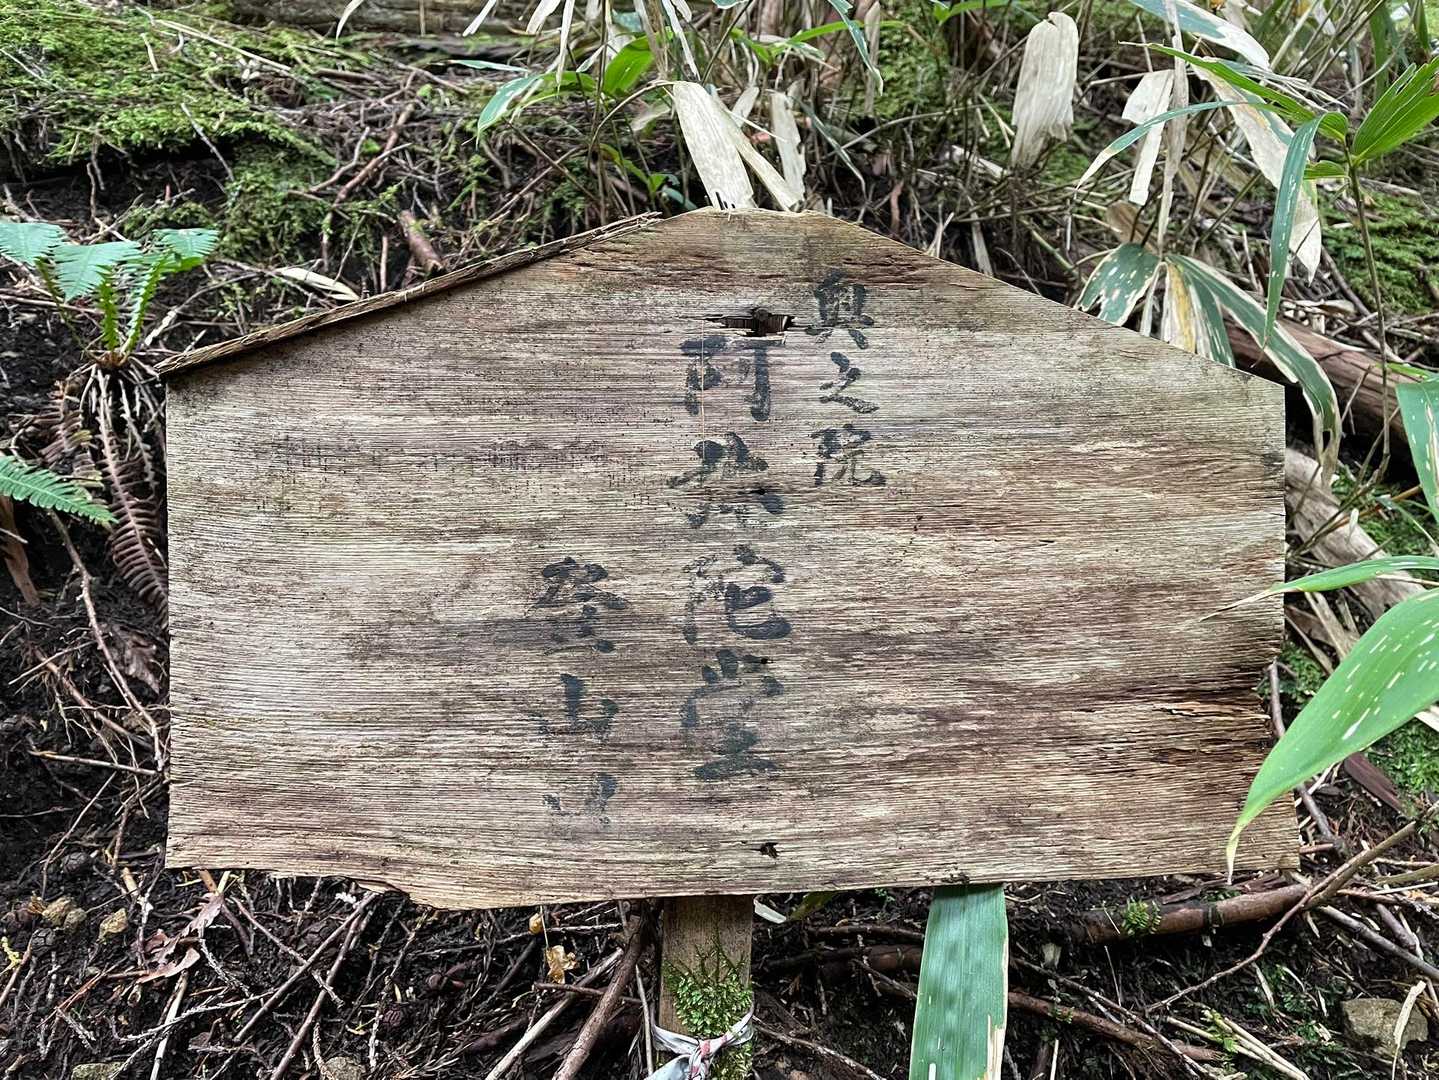 奥之院
阿弥陀堂
登山口